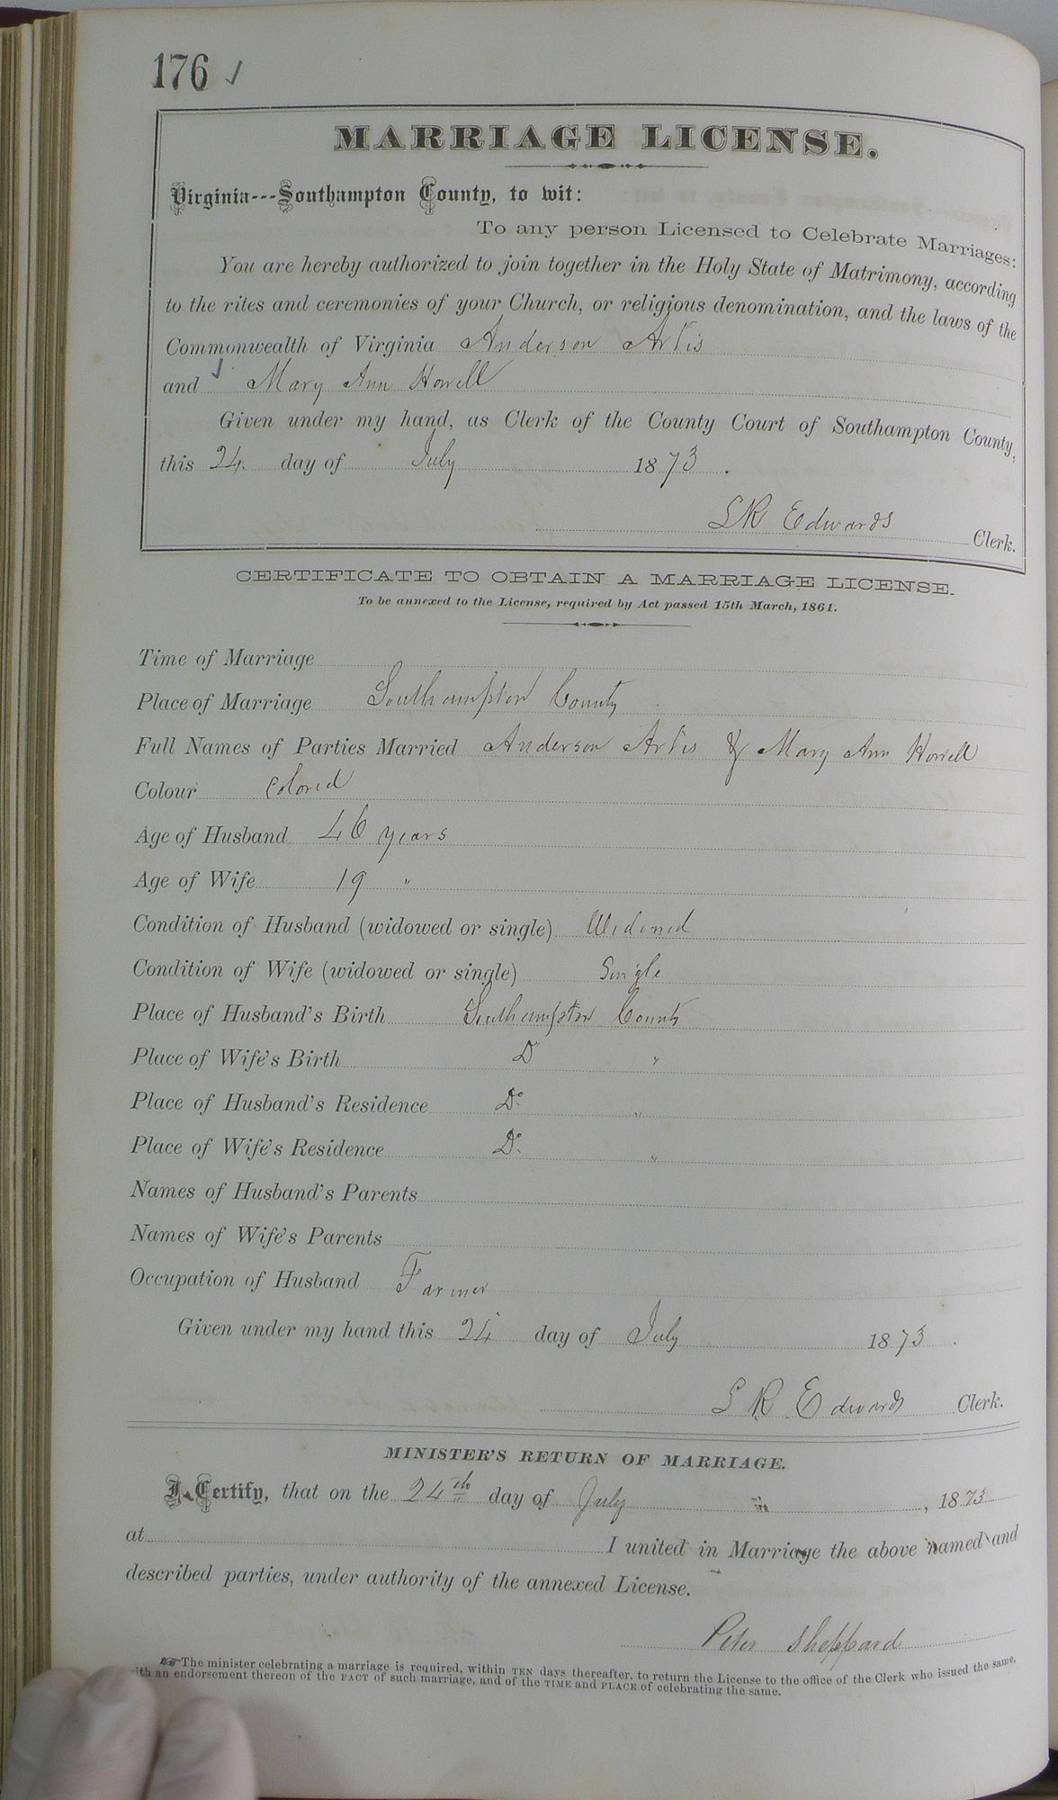 176 ✓
MARRIAGE LICENSE.
Virginia---Southampton County, to wit:
To any person Licensed to Celebrate Marriages:
You are hereby authorized to join together in the Holy State of Matrimony, according
to the rites and ceremonies of your Church, or religious denomination, and the laws of the
Commonwealth of Virginia Anderson Artis
and Mary Ann Howell
Given under my hand, as Clerk of the County Court of Southampton County,
this 24 day of July 1873.
LR Edwards Clerk.
CERTIFICATE TO OBTAIN A MARRIAGE LICENSE.
To be annexed to the License, required by Act passed 15th March, 1861.
Time of Marriage
Place of Marriage Southampton County
Full Names of Parties Married Anderson Artis & Mary Ann Howell
Colour Colored
Age of Husband 46 years
Age of Wife 19 "
Condition of Husband (widowed or single) Widowed
Condition of Wife (widowed or single) Single
Place of Husband's Birth Southampton County
Place of Wife's Birth Do "
Place of Husband's Residence Do "
Place of Wife's Residence Do "
Names of Husband's Parents
Names of Wife's Parents
Occupation of Husband Farmer
Given under my hand this 24 day of July 1873.
L R Edwards Clerk.
MINISTER'S RETURN OF MARRIAGE.
I Certify, that on the 24th day of July " , 1873
at I united in Marriage the above named and
described parties, under authority of the annexed License.
Peter Sheppard
☞The minister celebrating a marriage is required, within TEN days thereafter, to return the License to the office of the Clerk who issued the same,
with an endorsement thereon of the FACT of such marriage, and of the TIME and PLACE of celebrating the same.